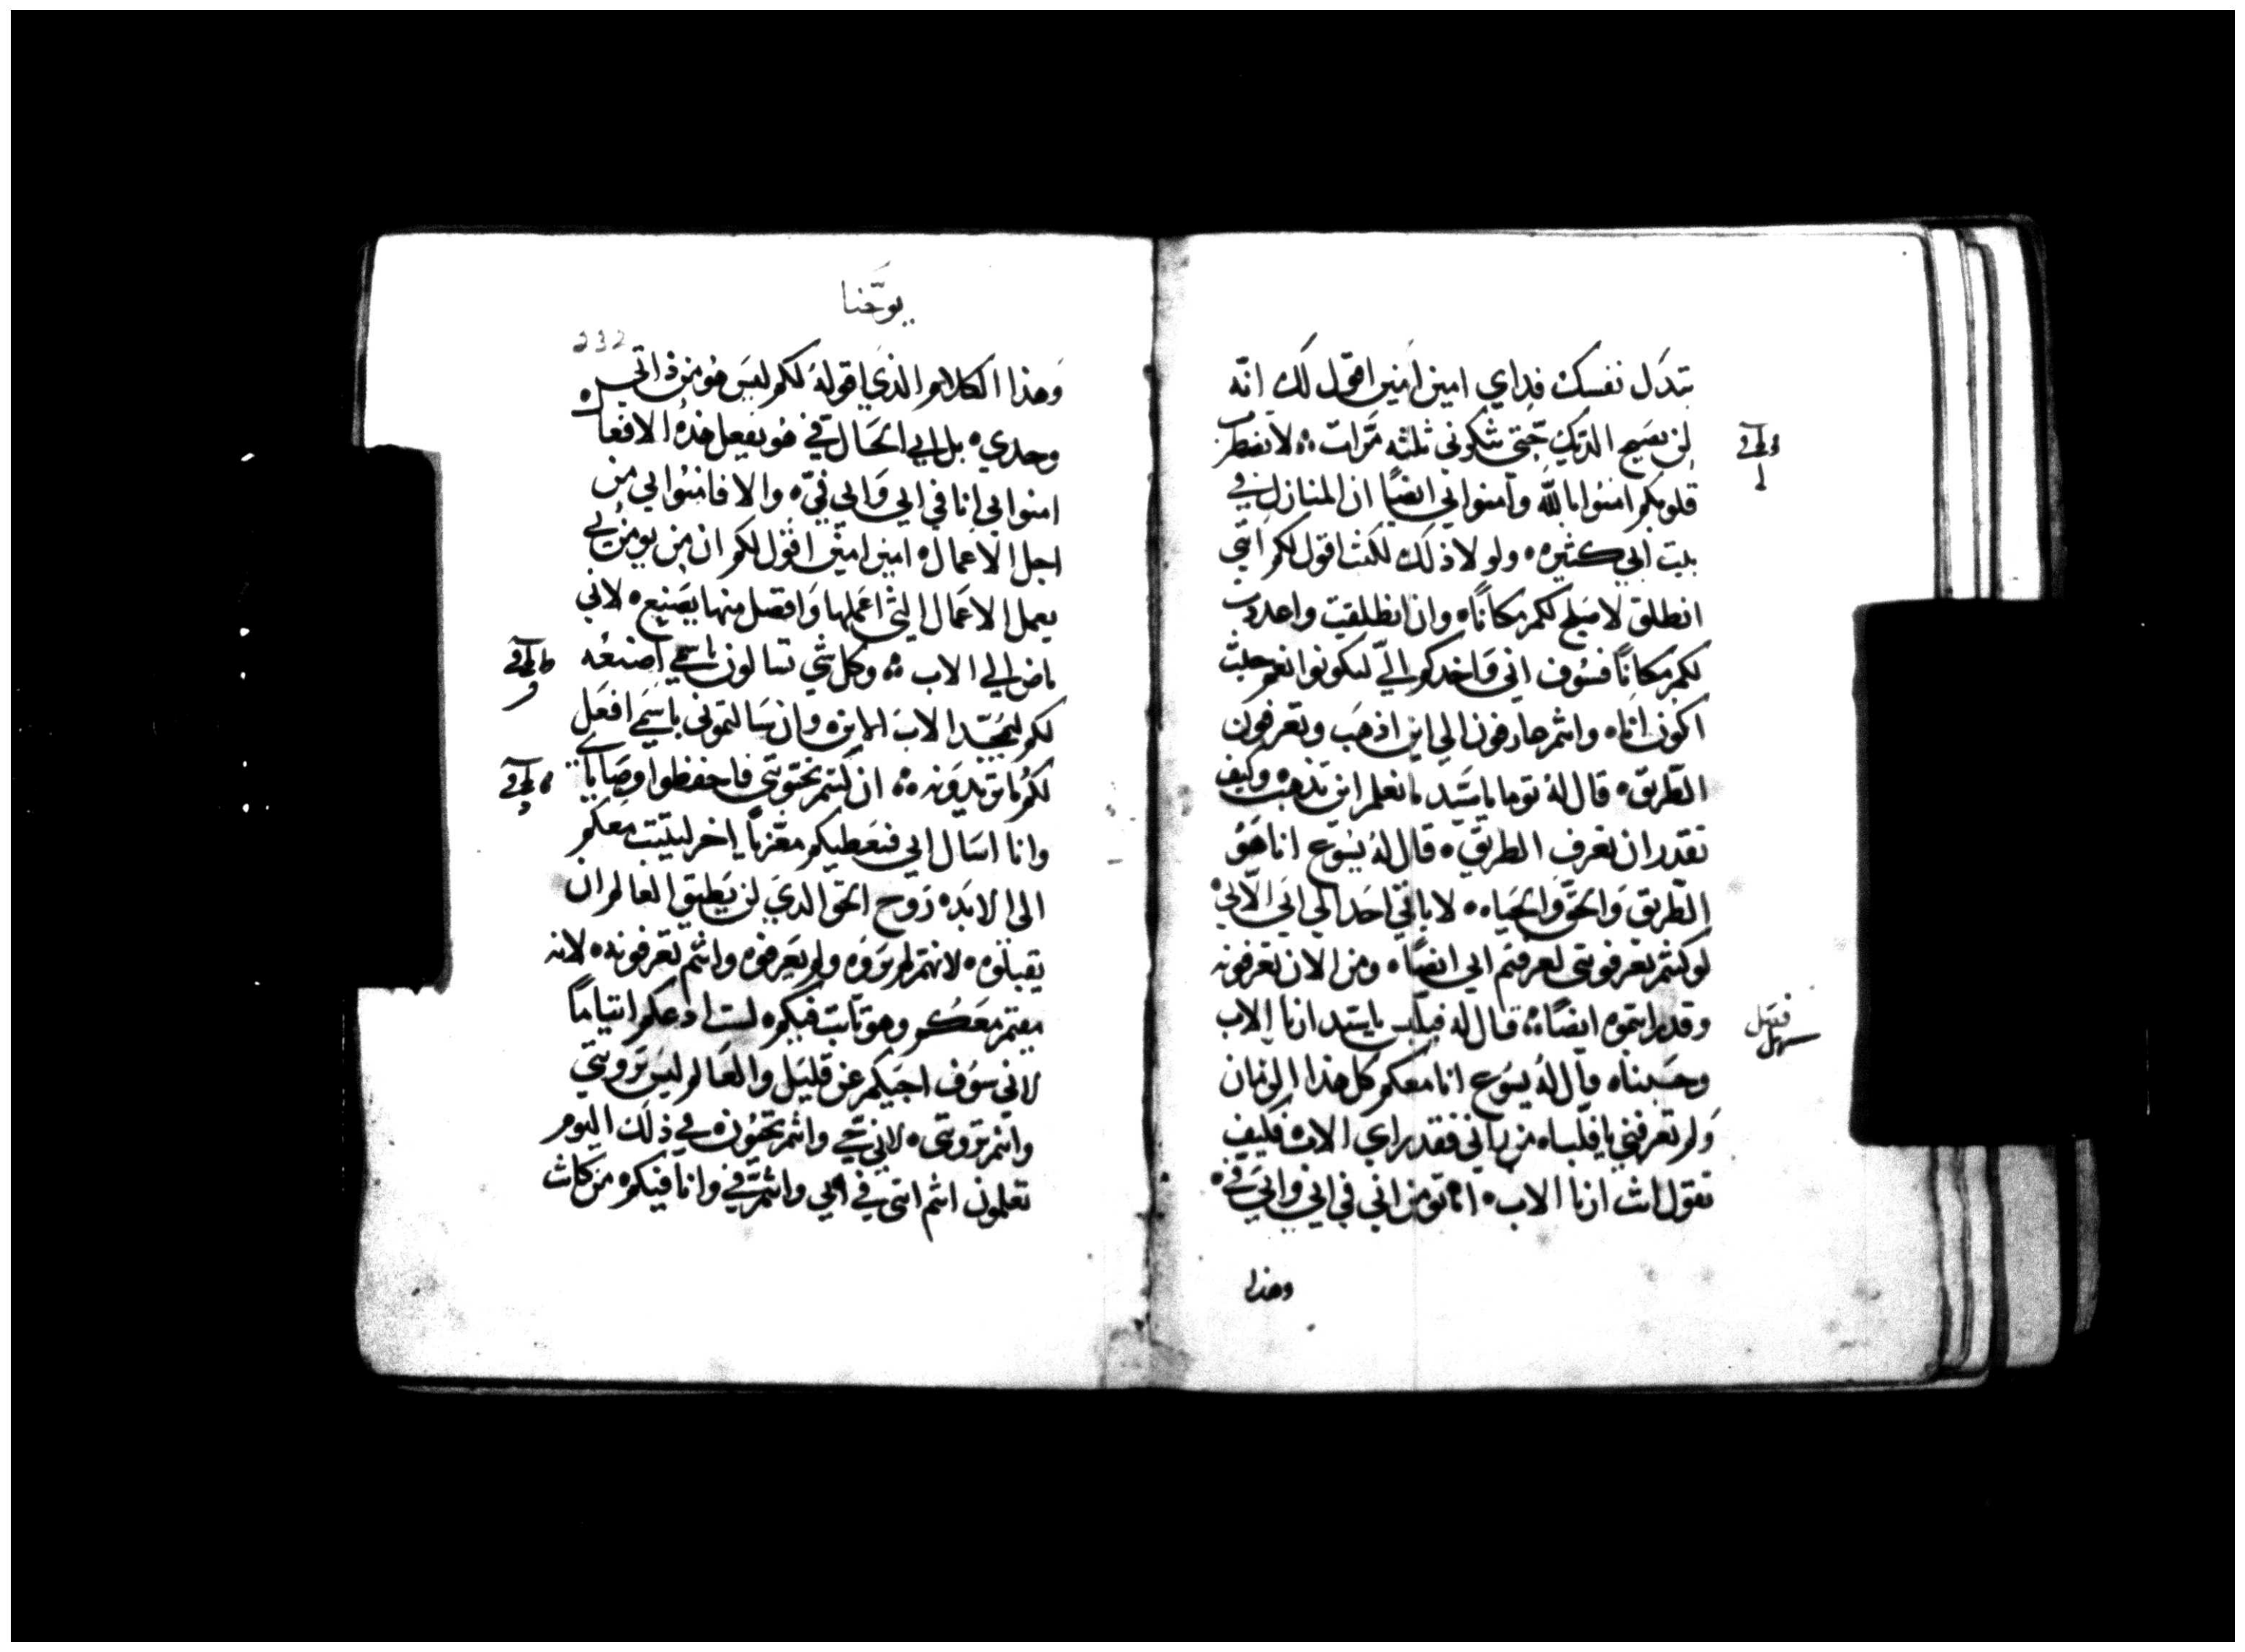 تبدل نفسك فداي امين امين اقول لك انه
لن يصيح الديك حتى تنكرني ثلثه مرات ؞ لا تضطرب
قلوبكم امنوا بالله وآمنوا بي ايضًا ان المنازل في
بيت ابي كثيره ه ولولا ذلك لكنت اقول لكم انني
انطلق لاصلح لكم مكانًا ه وان انطلقت واعددت
لكم مكانًا فسوف اتي فاخدكم اليّ لتكونوا انتم حيث
اكون انا ه وانتم عارفون الي اين اذهب وتعرفون
الطريق ه قال له توما يا سيد ما نعلم اين تذهب وكيف
نقدر ان نعرف الطريق ه قال له يسوع انا هو
الطريق والحق والحياه ه لا ياتي احد الي ابي الا بي ه
لو كنتم تعرفوني لعرفتم ابي ايضًا ه ومن الان تعرفونه
وقد رايتموه ايضًا ؞ قال له فيلبس يا سيد ارنا الاب
وحسبنا ه قال له يسوع انا معكم كل هذا الزمان
ولم تعرفني يا فيلبس ه من راني فقد راي الاب ه فكيف
تقول انت ارنا الاب ه اما تومن اني في ابي وابي فيّ ه
وهذا
يوحنا
232
وهذا الكلام الذي اقوله لكم ليس هو من ذاتي ه
وحدي ه بل ابي الحال فيّ هو يفعل هذه الافعال
امنوا بي انا في ابي وابي فيّ ه والا فامنوا بي من
اجل الاعمال ه امين امين اقول لكم ان من يومن بي
يعمل الاعمال التي اعملها وافضل منها يصنع ه لاني
ماض الي الاب ؞ وكل شي تسالون باسمي اصنعه
لكم ليتمجد الاب بالابن ه وان سالتموني باسمي افعل
لكم ما تريدونه ؞ ان كنتم تحبوني فاحفظوا وصاياي
وانا اسال ابي فيعطيكم معزيًا اخر ليثبت معكم
الى الابد ه روح الحق الذي لن يطيق العالم ان
يقبلوه ه لانهم لم يروه ولم يعرفوه وانتم تعرفونه ه لانه
مقيم معكم وهو ثابت فيكم ه لست ادعكم ايتامًا
لاني سوف اجيكم عن قليل والعالم ليس يروني
وانتم تروني ه لاني حي وانتم تحيون ه في ذلك اليوم
تعلمون انتم انني في ابي وانتم فيّ وانا فيكم ه من كانت